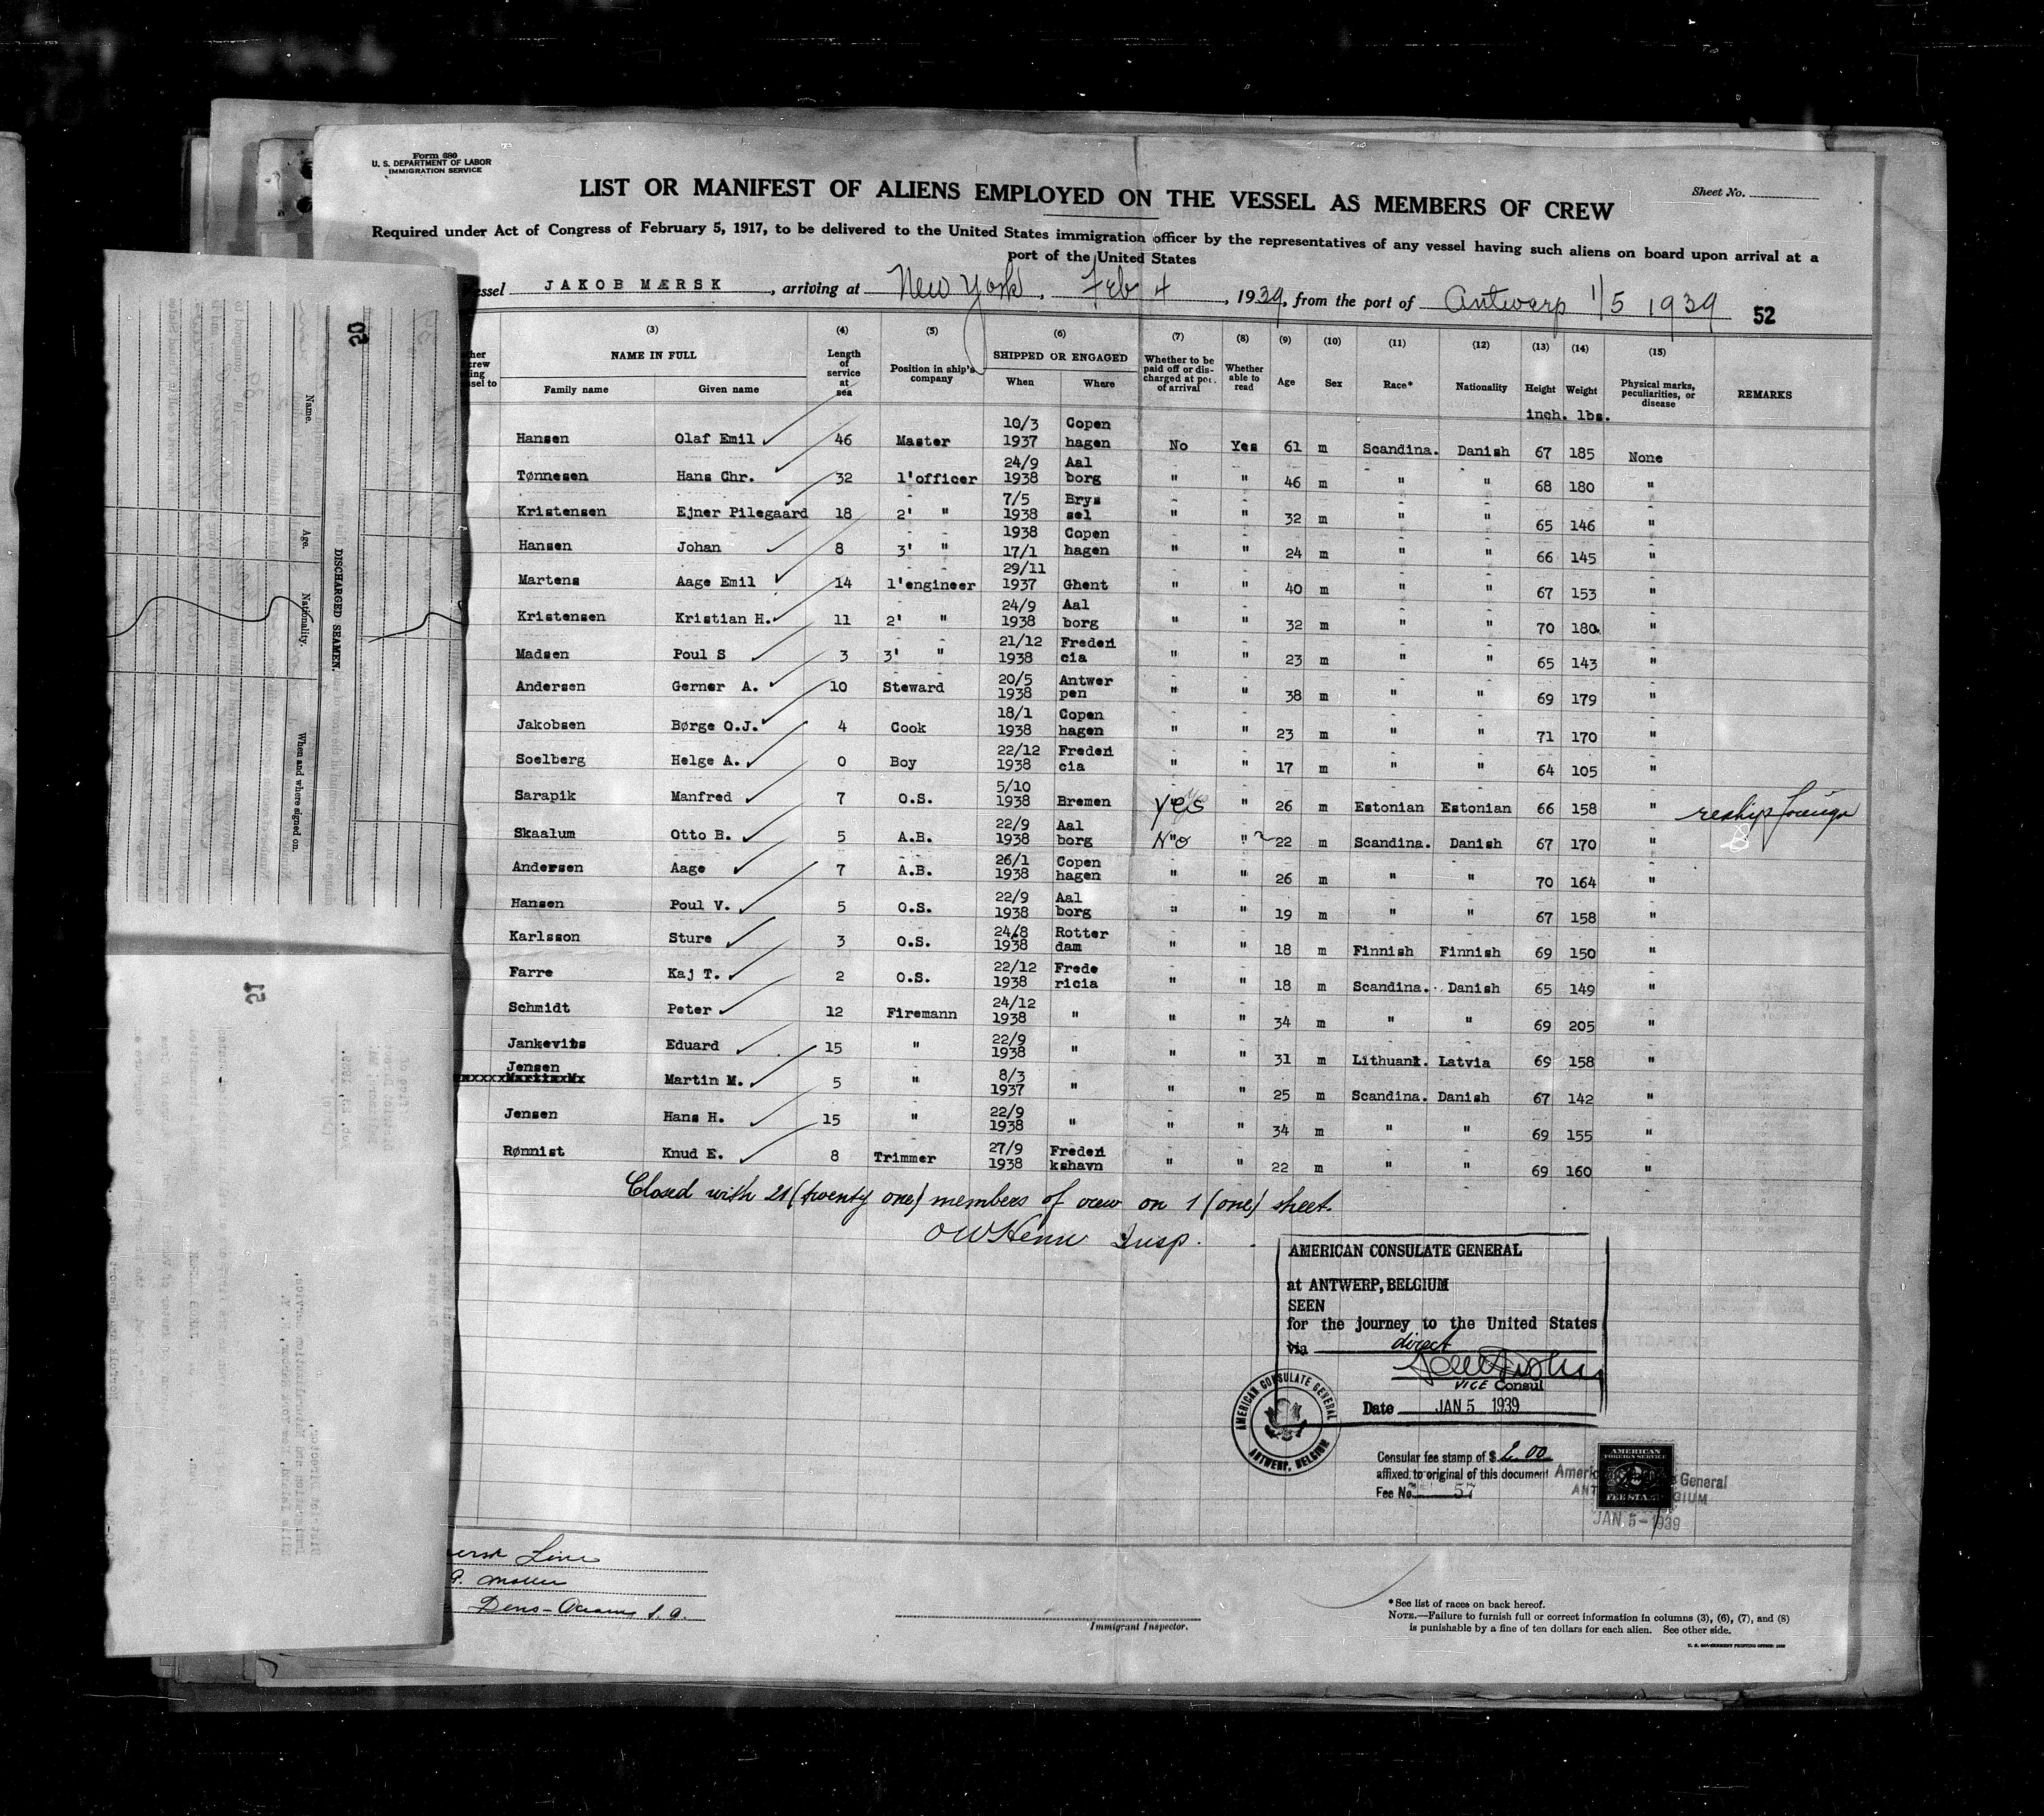 Form 680
U. S. DEPARTMENT OF LABOR
IMMIGRATION SERVICE
Sheet No.
LIST OR MANIFEST OF ALIENS EMPLOYED ON THE VESSEL AS MEMBERS OF CREW
Required under Act of Congress of February 5, 1917, to be delivered to the United States immigration officer by the representatives of any vessel having such aliens on board upon arrival at a
port of the United States
essel JAKOB MÆRSK, arriving at New York, Feb 4, 1939, from the port of Antwerp 1/5 1939 52
(3) (4) (5) (6) (7) (8) (9) (10) (11) (12) (13) (14) (15)
NAME IN FULL Length of service at sea Position in ship's company SHIPPED OR ENGAGED Whether to be paid off or discharged at port of arrival Whether able to read Age Sex Race* Nationality Height Weight Physical marks, peculiarities, or disease REMARKS
Family name Given name When Where inch. lbs.
Hansen Olaf Emil 46 Master 10/3 1937 Copen hagen No Yes 61 m Scandina. Danish 67 185 None
Tønnesen Hans Chr. 32 1'officer 24/9 1938 Aal borg " " 46 m " " 68 180 "
Kristensen Ejner Pilegaard 18 2' " 7/5 1938 Brys sel " " 32 m " " 65 146 "
Hansen Johan 8 3' " 1938 17/1 Copen hagen " " 24 m " " 66 145 "
Martens Aage Emil 14 1'engineer 29/11 1937 Ghent " " 40 m " " 67 153 "
Kristensen Kristian H. 11 2' " 24/9 1938 Aal borg " " 32 m " " 70 180 "
Madsen Poul S 3 3' " 21/12 1938 Frederi cia " " 23 m " " 65 143 "
Andersen Gerner A. 10 Steward 20/5 1938 Antwer pen " " 38 m " " 69 179 "
Jakobsen Børge O.J. 4 Cook 18/1 1938 Copen hagen " " 23 m " " 71 170 "
Soelberg Helge A. 0 Boy 22/12 1938 Frederi cia " " 17 m " " 64 105 "
Sarapik Manfred 7 O.S. 5/10 1938 Bremen Yes " 26 m Estonian Estonian 66 158 " reship foreign
Skaalum Otto B. 5 A.B. 22/9 1938 Aal borg No " 22 m Scandina. Danish 67 170 "
Andersen Aage 7 A.B. 26/1 1938 Copen hagen " " 26 m " " 70 164 "
Hansen Poul V. 5 O.S. 22/9 1938 Aal borg " " 19 m " " 67 158 "
Karlsson Sture 3 O.S. 24/8 1938 Rotter dam " " 18 m Finnish Finnish 69 150 "
Farre Kaj T. 2 O.S. 22/12 1938 Frede ricia " " 18 m Scandina. Danish 65 149 "
Schmidt Peter 12 Firemann 24/12 1938 " " " 34 m " " 69 205 "
Jankevits Eduard 15 " 22/9 1938 " " " 31 m Lithuani. Latvia 69 158 "
Jensen Martin M. 5 " 8/3 1937 " " " 25 m Scandina. Danish 67 142 "
Jensen Hans H. 15 " 22/9 1938 " " " 34 m " " 69 155 "
Rønnist Knud E. 8 Trimmer 27/9 1938 Frederi kshavn " " 22 m " " 69 160 "
Closed with 21 (twenty one) members of crew on 1 (one) sheet.
Insp.
AMERICAN CONSULATE GENERAL
at ANTWERP, BELGIUM
SEEN
for the journey to the United States
via direct
VICE Consul
Date JAN 5 1939
AMERICAN CONSULATE GENERAL
ANTWERP, BELGIUM
Consular fee stamp of $ 2.00
affixed to original of this document
Fee No. 57
AMERICAN
FOREIGN SERVICE
FEE STAMP
General
JAN. 5-1939
Line
Immigrant Inspector.
*See list of races on back hereof.
NOTE.—Failure to furnish full or correct information in columns (3), (6), (7), and (8)
is punishable by a fine of ten dollars for each alien. See other side.
U. S. GOVERNMENT PRINTING OFFICE
50
DISCHARGED SEAMEN.
Name.
Age.
Nationality.
When and where signed on.
51